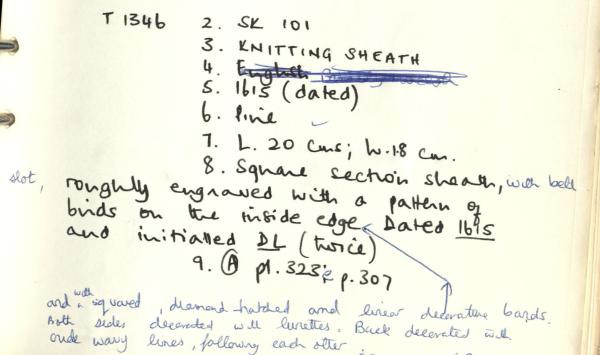 T 1346 2. SK 101
3. KNITTING SHEATH
4. English
5. 1615 (dated)
6. Pine
7. L. 20 cms; W. 1.8 cm.
8. Square section sheath, with belt
slot, roughly engraved with a pattern of
birds on the inside edge Dated 1615
and initialled DL (twice)
9. Ⓐ pl. 323; p. 307
and with squared, diamond hatched and linear decorative bands.
Both sides decorated with lunettes. Back decorated with
crude wavy lines, following each other